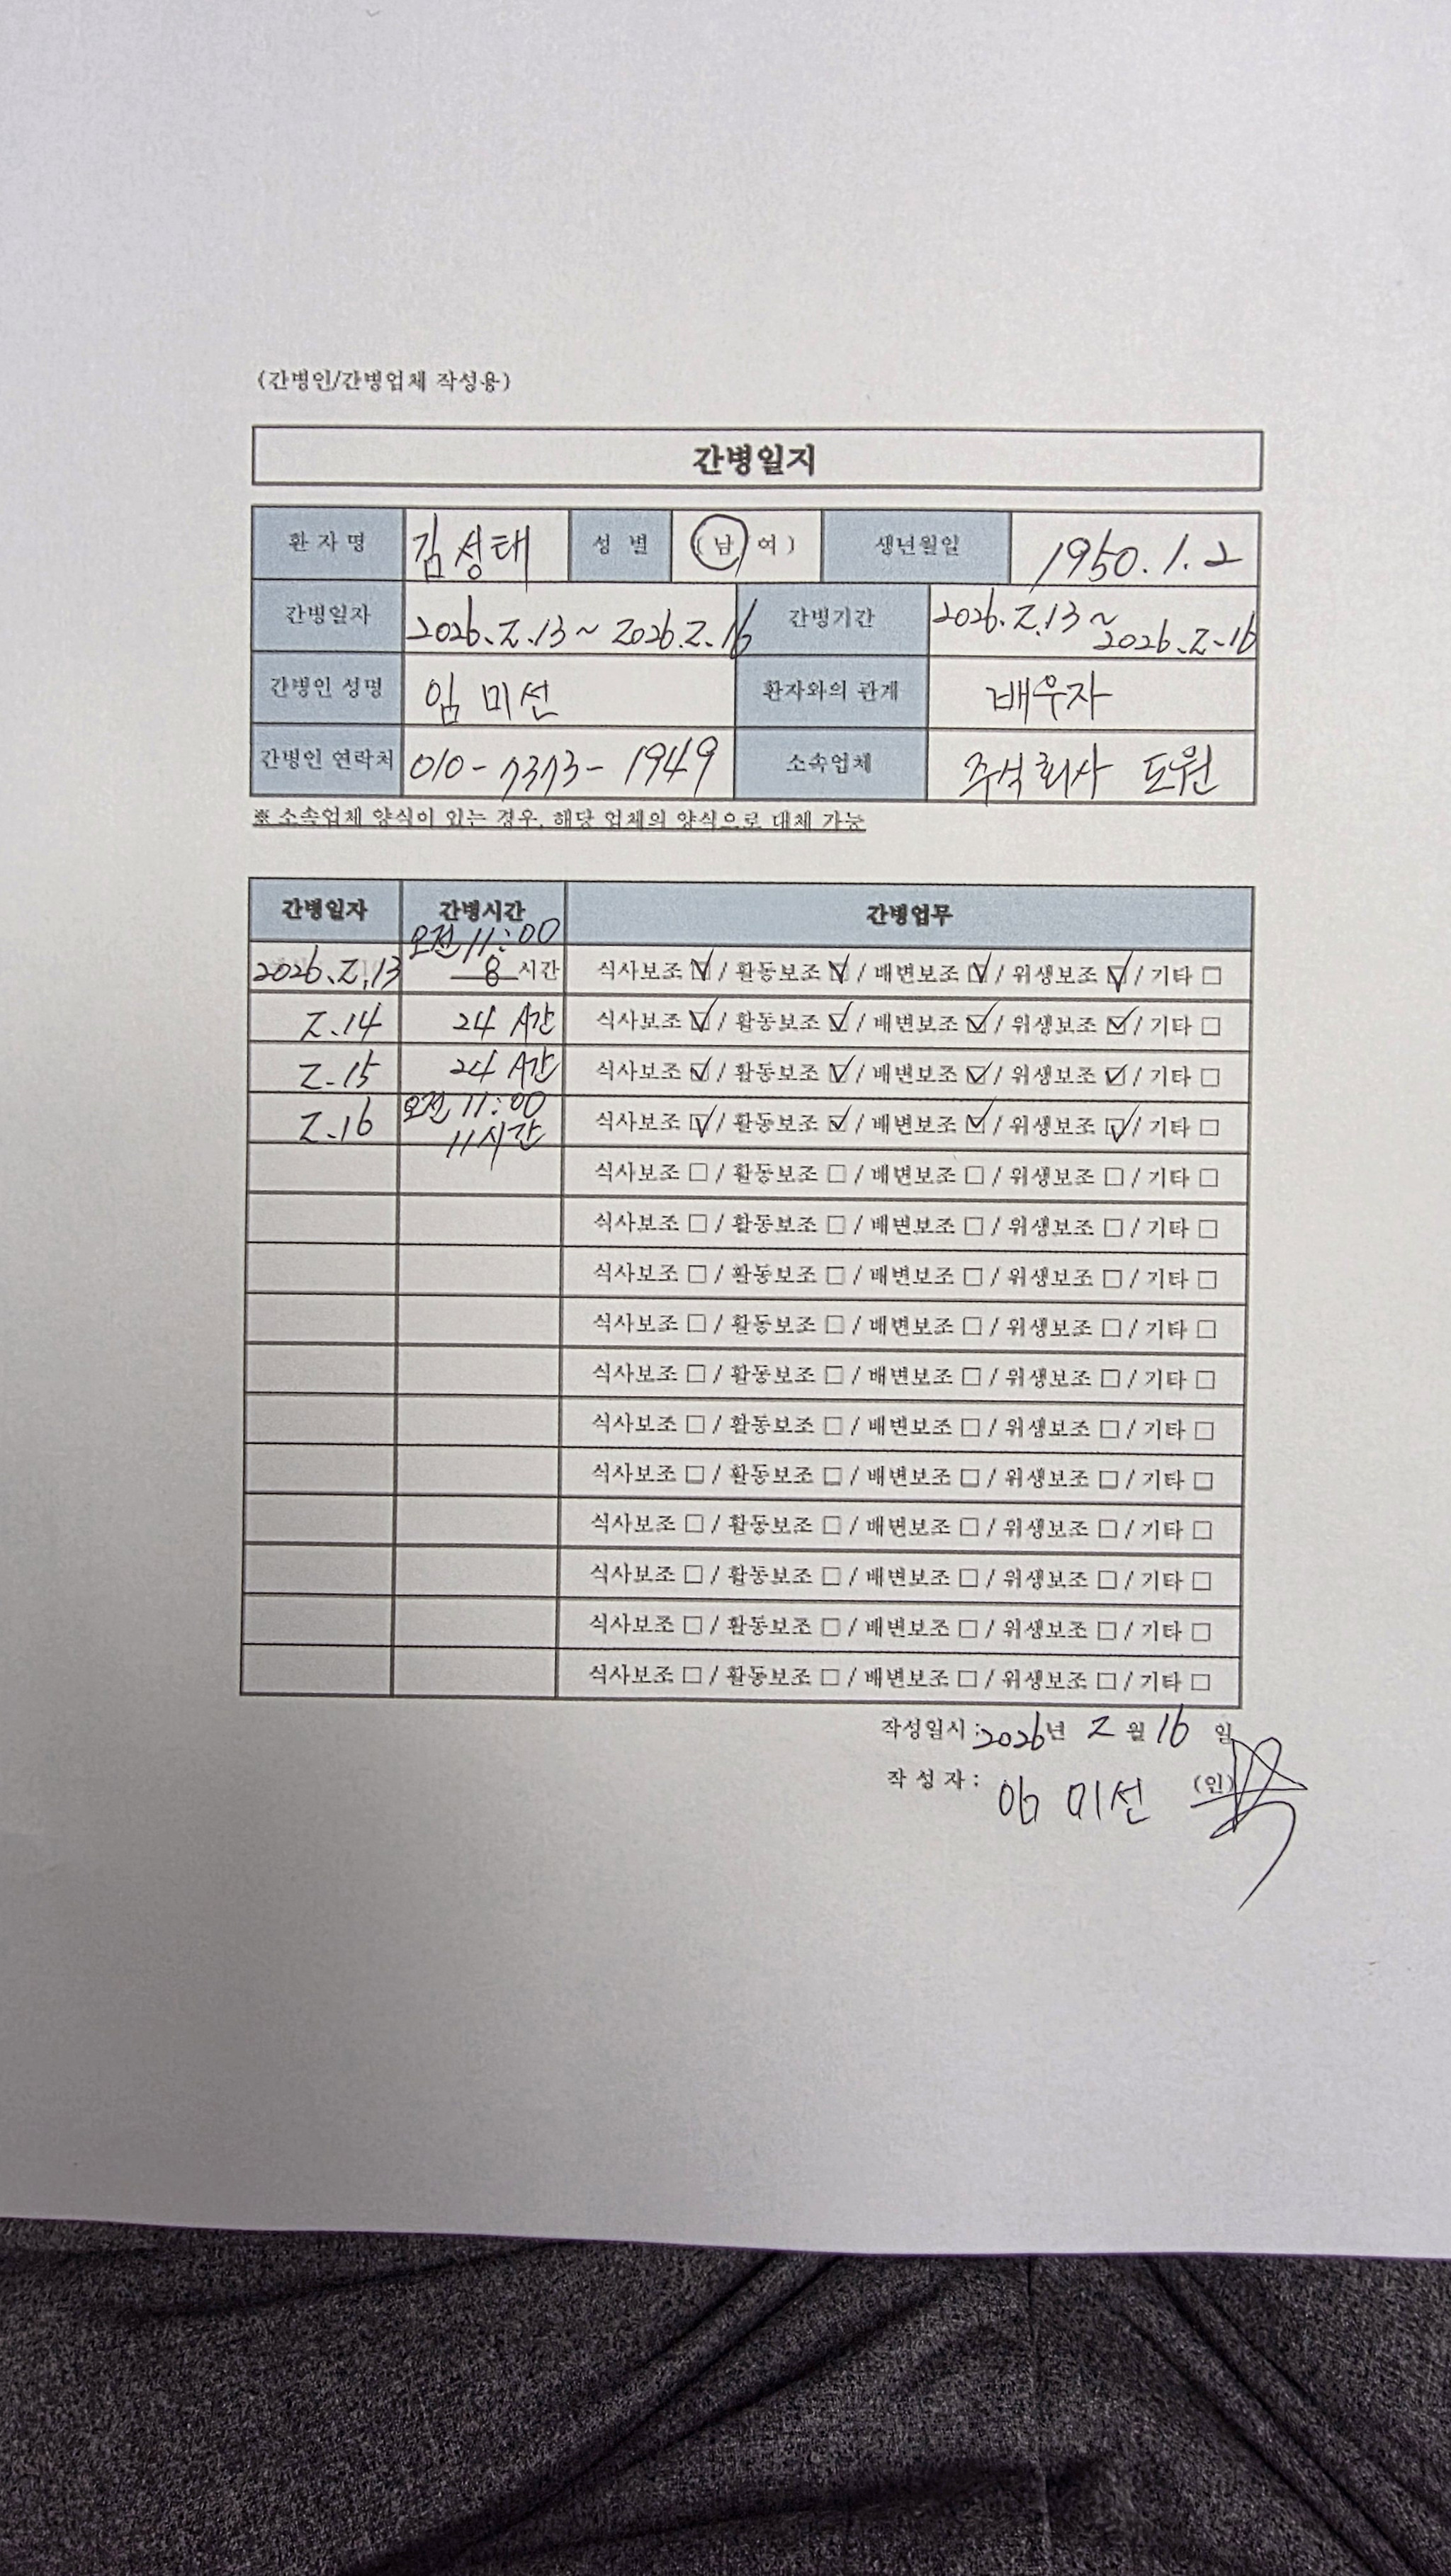 (간병인/간병업체 작성용)
간병일지
환자명 김성태 성 별 (남 여) 생년월일 1950.1.2
간병일자 2026.2.13 ~ 2026.2.16 간병기간 2026.2.13 ~ 2026.2.16
간병인 성명 임미선 환자와의 관계 배우자
간병인 연락처 010-7373-1949 소속업체 주식회사 도원
※ 소속업체 양식이 있는 경우, 해당 업체의 양식으로 대체 가능
간병일자 간병시간 간병업무
2026.2.13 오전 11:00 8 시간 식사보조 ☑ / 활동보조 ☑ / 배변보조 ☑ / 위생보조 ☑ / 기타 □
2.14 24 시간 식사보조 ☑ / 활동보조 ☑ / 배변보조 ☑ / 위생보조 ☑ / 기타 □
2.15 24 시간 식사보조 ☑ / 활동보조 ☑ / 배변보조 ☑ / 위생보조 ☑ / 기타 □
2.16 오전 11:00 11시간 식사보조 ☑ / 활동보조 ☑ / 배변보조 ☑ / 위생보조 ☑ / 기타 □
식사보조 □ / 활동보조 □ / 배변보조 □ / 위생보조 □ / 기타 □
식사보조 □ / 활동보조 □ / 배변보조 □ / 위생보조 □ / 기타 □
식사보조 □ / 활동보조 □ / 배변보조 □ / 위생보조 □ / 기타 □
식사보조 □ / 활동보조 □ / 배변보조 □ / 위생보조 □ / 기타 □
식사보조 □ / 활동보조 □ / 배변보조 □ / 위생보조 □ / 기타 □
식사보조 □ / 활동보조 □ / 배변보조 □ / 위생보조 □ / 기타 □
식사보조 □ / 활동보조 □ / 배변보조 □ / 위생보조 □ / 기타 □
식사보조 □ / 활동보조 □ / 배변보조 □ / 위생보조 □ / 기타 □
식사보조 □ / 활동보조 □ / 배변보조 □ / 위생보조 □ / 기타 □
식사보조 □ / 활동보조 □ / 배변보조 □ / 위생보조 □ / 기타 □
식사보조 □ / 활동보조 □ / 배변보조 □ / 위생보조 □ / 기타 □
작성일시 : 2026년 2 월 16 일
작 성 자 : 임미선 (인)